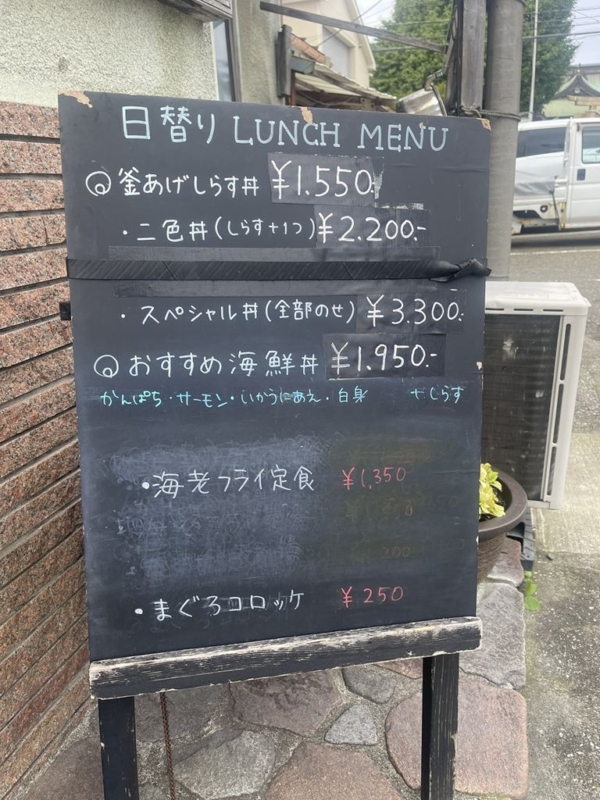 日替り LUNCH MENU
◎釜あげしらす丼 ¥1.550.-
・二色丼(しらす+1つ) ¥2.200.-
・スペシャル丼(全部のせ) ¥3.300.
◎おすすめ海鮮丼 ¥1.950.-
かんぱち・サーモン・いかうにあえ・白身 + しらす
・海老フライ定食 ¥1,350
・まぐろコロッケ ¥250